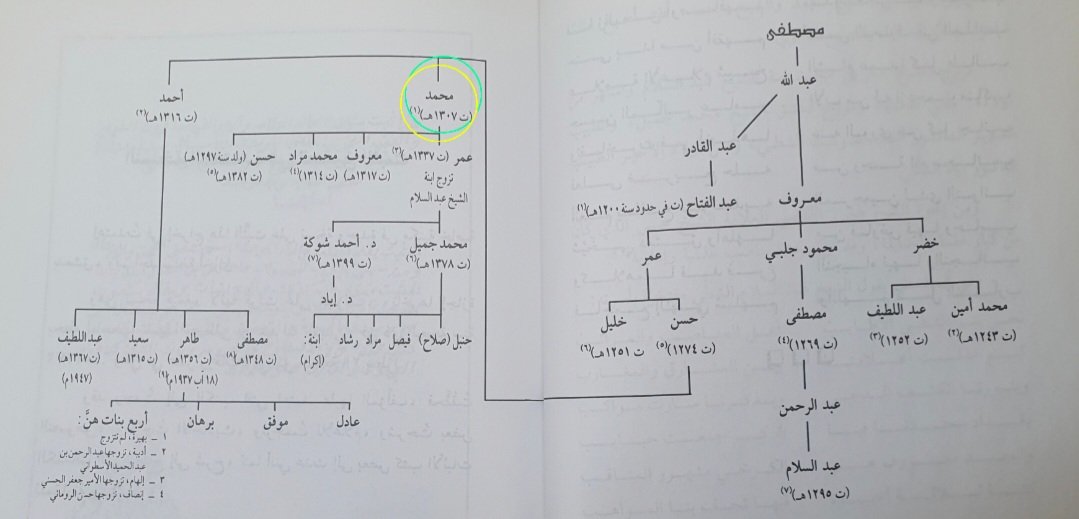 مصطفى
عبد الله
عبد القادر
معروف
عبد الفتاح (ت في حدود سنة ١٢٠٠هـ)(١)
خضر
محمود جلبي
عمر
محمد أمين
(ت ١٢٤٣هـ)(٢)
عبد اللطيف
(ت ١٢٥٢هـ)(٣)
مصطفى
(ت ١٢٦٩)(٤)
حسن
(ت ١٢٧٤)(٥)
خليل
(ت ١٢٥١هـ)(٦)
عبد الرحمن
عبد السلام
(ت ١٢٩٥هـ)(٧)
محمد
(ت ١٣٠٧هـ)(١)
أحمد
(ت ١٣١٦هـ)(٢)
عمر (ت ١٣٣٧هـ)(٣)
تزوج ابنة
الشيخ عبد السلام
معروف
(ت ١٣١٧هـ)
محمد مراد
(ت ١٣١٤)(٤)
حسن (ولد سنة ١٢٩٧هـ)
(ت ١٣٨٢هـ)(٥)
محمد جميل
(ت ١٣٧٨هـ)(٦)
د. أحمد شوكة
(ت ١٣٩٩هـ)(٧)
د. إياد
حنبل (صلاح)
فيصل
مراد
رشاد
ابنة:
(إكرام)
مصطفى
(ت ١٣٤٨هـ)(٨)
طاهر
(ت ١٣٥٦هـ)
(١٨ آب ١٩٣٧م)(٩)
سعيد
(ت ١٣١٥هـ)
عبد اللطيف
(ت ١٣٦٧هـ)
(١٩٤٧م)
عادل
موفق
برهان
أربع بنات هنَّ:
١ ـ بهيرة، لم تتزوج
٢ ـ أديبة، تزوجها عبد الرحمن بن
عبد الحميد الأسطواني
٣ ـ إلهام، تزوجها الأمير جعفر الحسني
٤ ـ إنصاف، تزوجها حسن الروماني